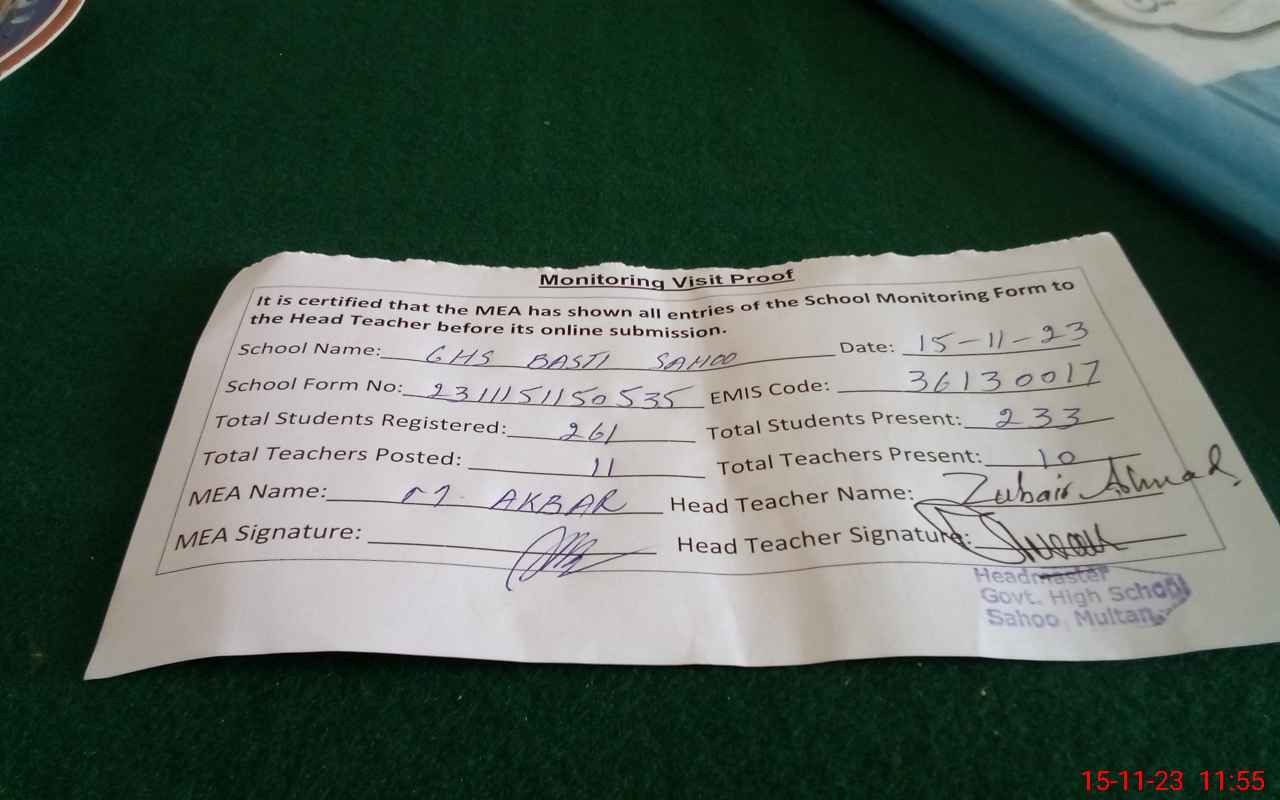 Monitoring Visit Proof
It is certified that the MEA has shown all entries of the School Monitoring Form to
the Head Teacher before its online submission.
School Name: GHS BASTI SAHOO Date: 15-11-23
School Form No: 2311151150535 EMIS Code: 36130017
Total Students Registered: 261 Total Students Present: 233
Total Teachers Posted: 11 Total Teachers Present: 10
MEA Name: M. AKBAR Head Teacher Name: Zubair Ahmad
MEA Signature: Head Teacher Signature:
Headmaster
Govt. High School
Sahoo, Multan.
15-11-23 11:55